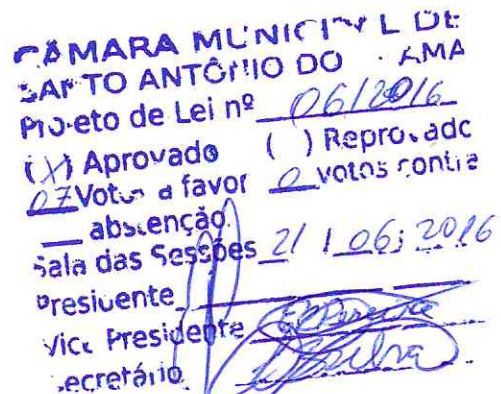 CÂMARA MUNICIPAL DE
SANTO ANTÔNIO DO AMA
Projeto de Lei nº 06/2016
(X) Aprovado ( ) Reprovado
07 Votos a favor 0 votos contra
___ abstenção
Sala das Sessões 21 / 06 / 2016
Presidente
Vice Presidente
Secretário